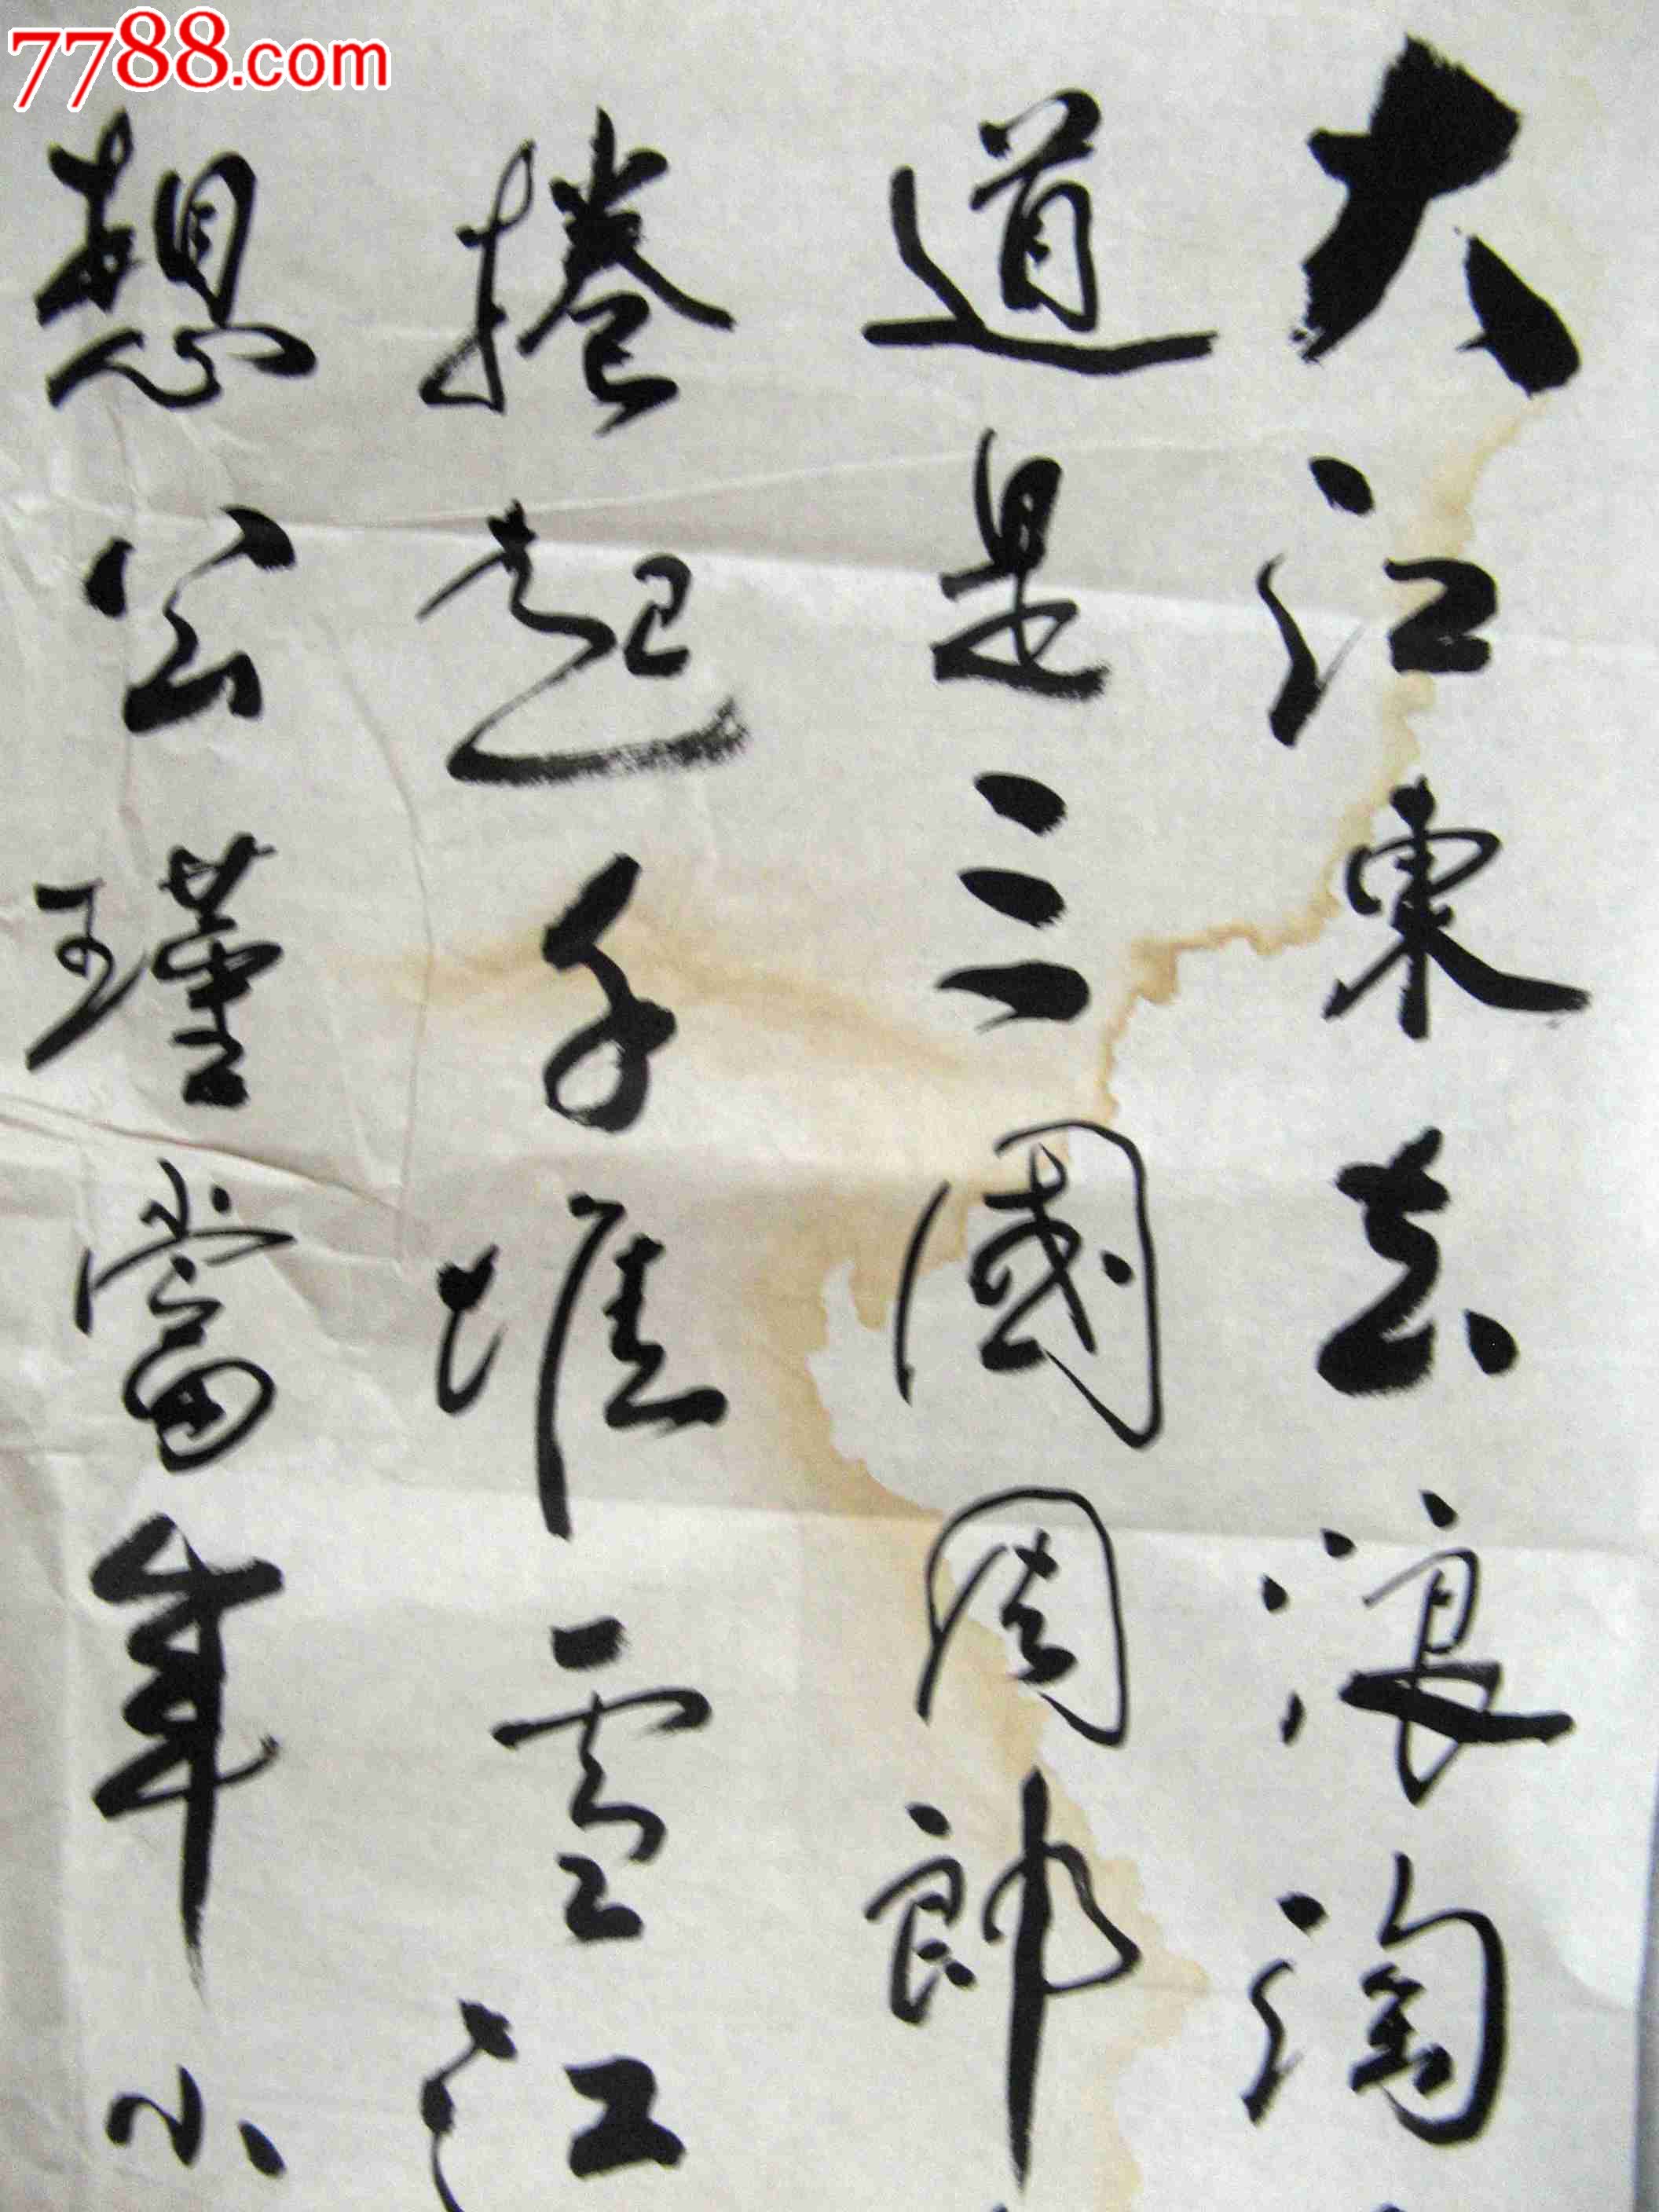 7788.com
大江東去浪淘
道是三國周郎
捲起千堆雪江
想公瑾當年小